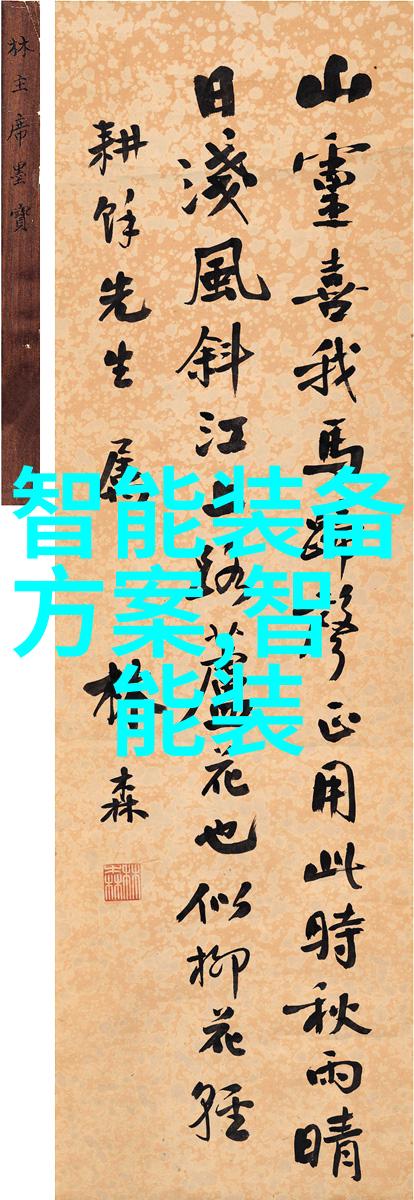 山靈喜我馬蹄聲正用此時秋雨晴
日淺風斜江上路蘆花也似柳花輕
耕餘先生屬 林森
林森
林主席墨寶
智能装备
方案,智
能装